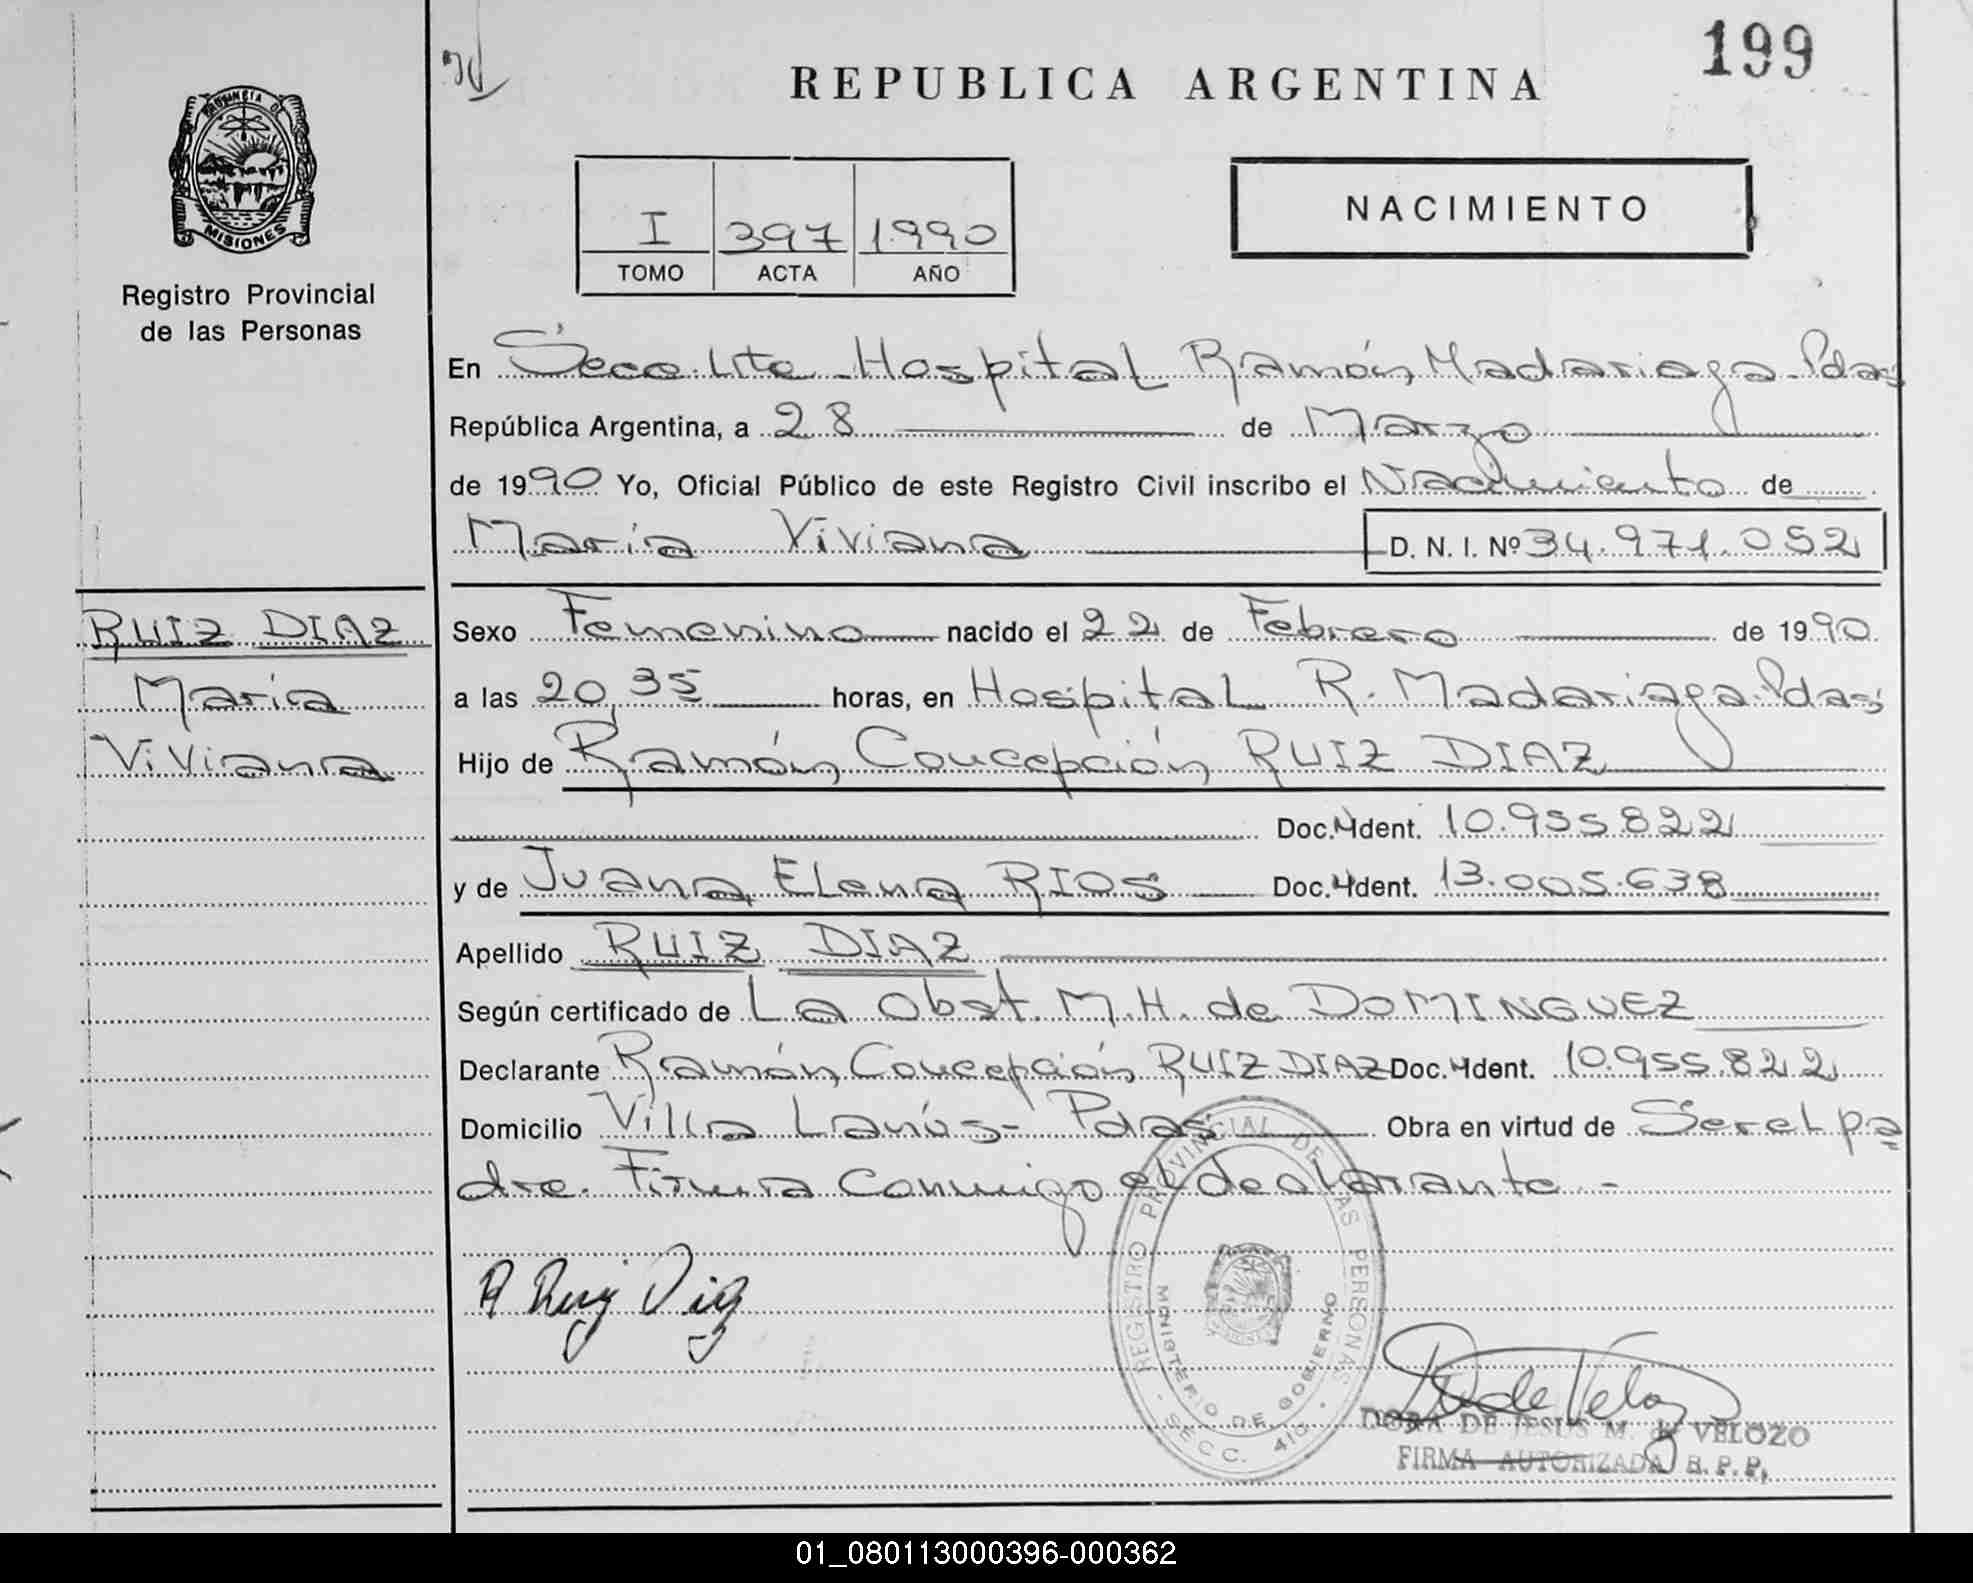 199
REPUBLICA ARGENTINA
PROVINCIA DE
MISIONES
Registro Provincial
de las Personas
I 397 1990
TOMO ACTA AÑO
NACIMIENTO
En Secc. Hospital Ramón Madariaga - Pdas
República Argentina, a 28 de Marzo
de 1990 Yo, Oficial Público de este Registro Civil inscribo el Nacimiento de
María Viviana D. N. I. Nº 34.971.052
RUIZ DIAZ
María
Viviana
Sexo Femenino nacido el 22 de Febrero de 1990
a las 20,35 horas, en Hospital R. Madariaga - Pdas
Hijo de Ramón Concepción RUIZ DIAZ
Doc. Ident. 10.955.822
y de Juana Elena RIOS Doc. Ident. 13.005.638
Apellido RUIZ DIAZ
Según certificado de La Obst. M.H. de DOMINGUEZ
Declarante Ramón Concepción RUIZ DIAZ Doc. Ident. 10.955.822
Domicilio Villa Lanús - Pdas Obra en virtud de Ser el pa
dre. Firma Conmigo el declarante -
R Ruiz Diaz
REGISTRO PROVINCIAL DE LAS PERSONAS
MINISTERIO DE GOBIERNO
SECC. 410
DORA DE JESUS M. de VELOZO
FIRMA AUTORIZADA R. P. P.
01_080113000396-000362